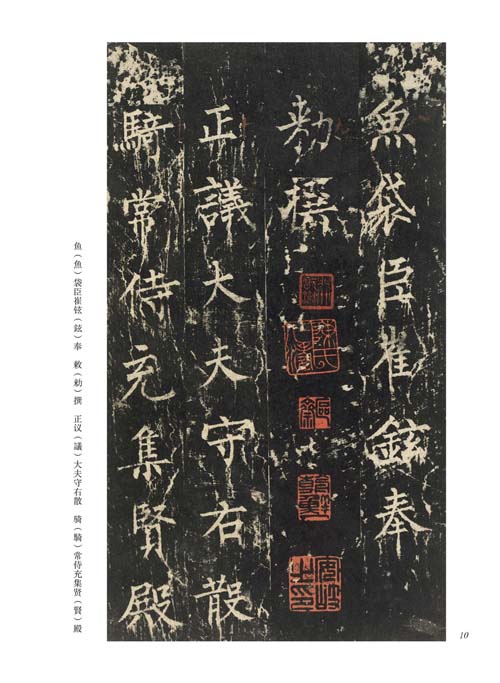 魚袋臣崔鉉奉
勑撰
正議大夫守右散
騎常侍充集賢殿
鱼（魚）袋臣崔铉（鉉）奉　敕（勑）撰　正议（議）大夫守右散　骑（騎）常侍充集贤（賢）殿
10